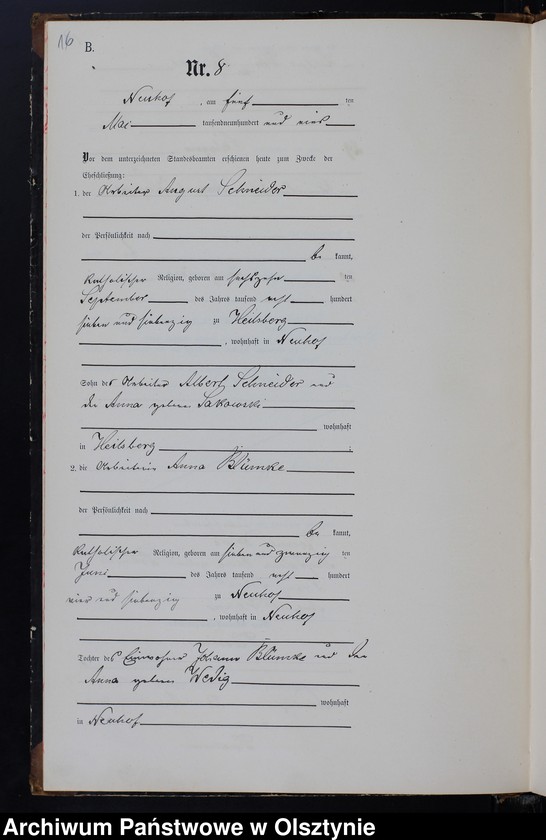 16
B.
Nr. 8
Neuhof, am fünf ten
Mai tausendneunhundert und vier
Vor dem unterzeichneten Standesbeamten erschienen heute zum Zwecke der
Eheschließung:
1. der Arbeiter August Schneider
der Persönlichkeit nach
be kannt,
katholischer Religion, geboren am sechszehn ten
September des Jahres tausend acht hundert
sieben und siebenzig zu Heilsberg
, wohnhaft in Neuhof
Sohn des Arbeiter Albert Schneider und
der Anna geborene Sakowski
wohnhaft
in Heilsberg ;
2. die Arbeiterin Anna Blümke
der Persönlichkeit nach
be kannt,
katholischer Religion, geboren am sieben und zwanzig ten
Juni des Jahres tausend acht hundert
vier und siebenzig zu Neuhof
, wohnhaft in Neuhof
Tochter des Einwohner Johann Blümke und der
Anna geborene Wedig
wohnhaft
in Neuhof
Archiwum Państwowe w Olsztynie